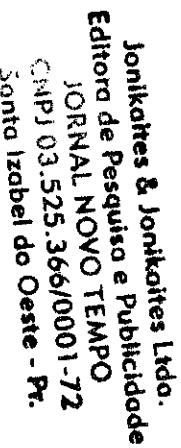 Jonikaites & Jonikaites Ltda.
Editora de Pesquisa e Publicidade
JORNAL NOVO TEMPO
CNPJ 03.525.366/0001-72
Santa Izabel do Oeste - Pr.